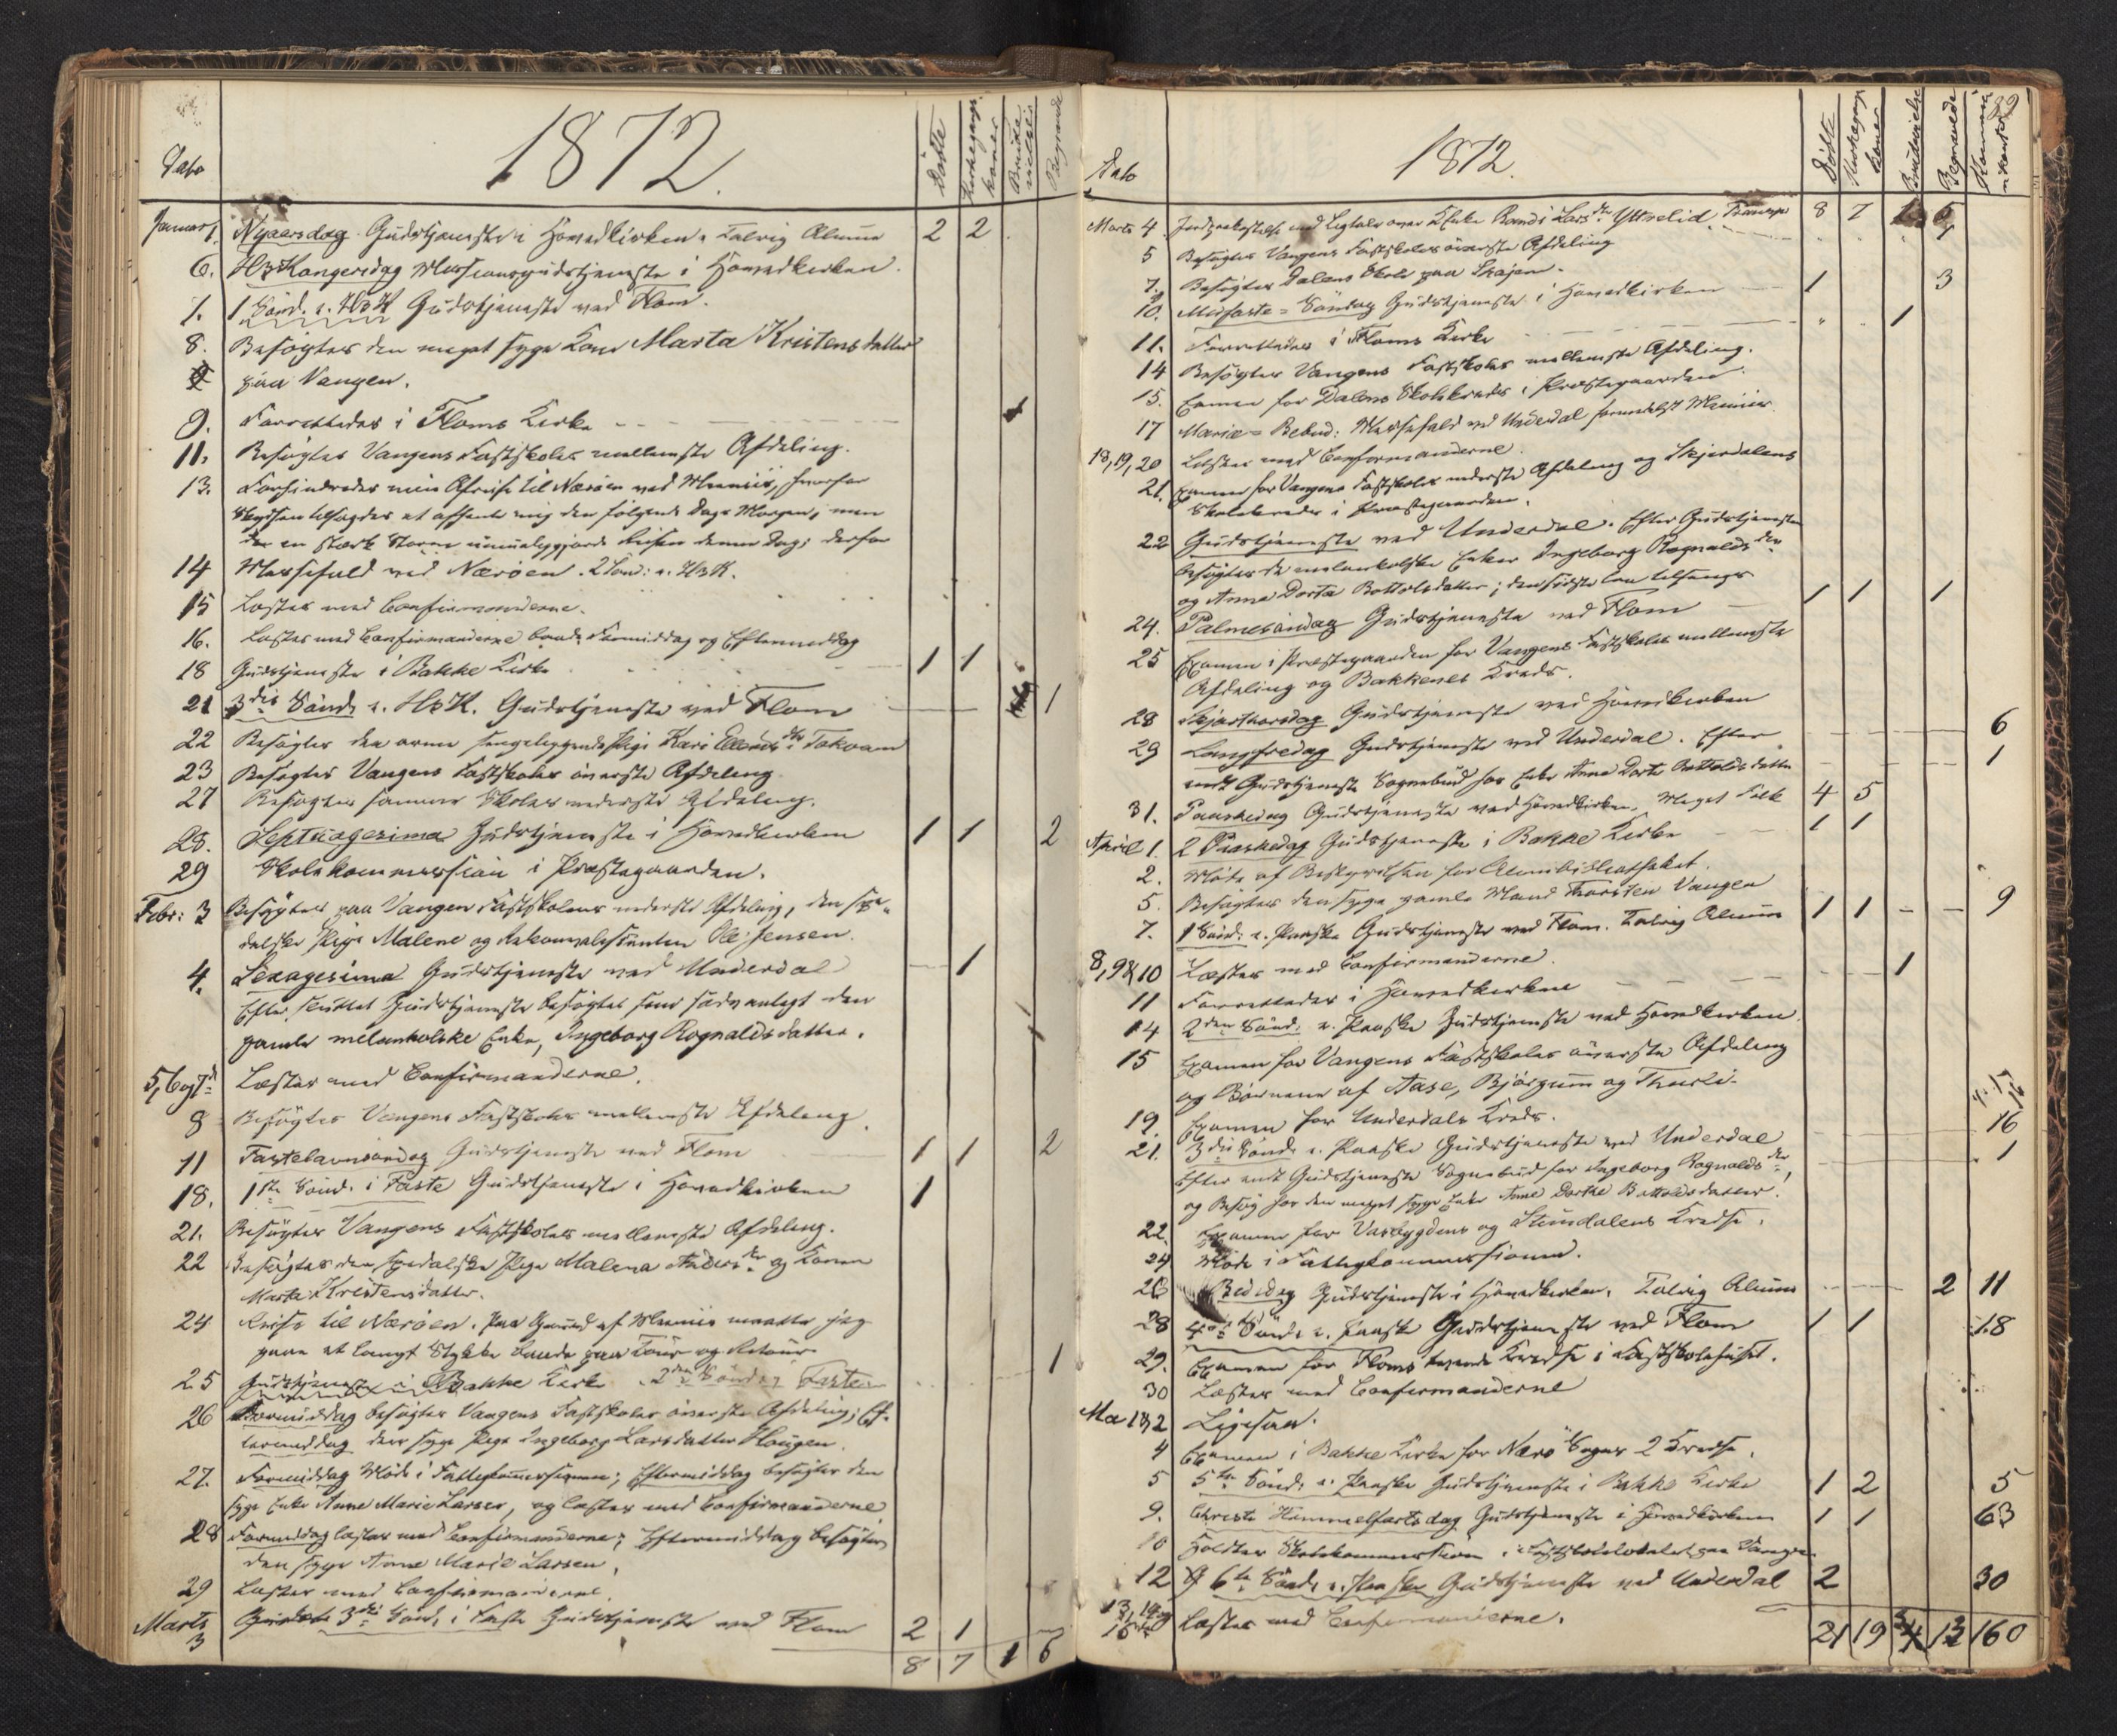 Dato
1872.
Døbte
Kirkegangs
koner
Brude
vielser
Begravede
Januar 1. Nyaarsdag Gudstjeneste i Hovedkirken. Talrig Almue 2 2
6. H3Kongersdag Messeonsgudstjeneste i Hovedkirken.
7. 1 Sønd. e. H3K Gudstjeneste ved Flom.
8. Besøgtes den meget syge Kone Marta Kristensdatter
paa Vangen.
9. Forrettedes i Floms Kirke
11. Besøgtes Vangens Fastskoles mellemste Afdeling.
13. Forhindredes min Afreise til Nærøen ved Meniis, hvorfor
Skydsen tilsagdes at afhente mig den følgende Dags Morgen, men
en stærk Storm umuliggjorde Reisen denne Dag; derfor
14 Messefald ved Nærøen. 2 Sønd: e. H3K.
15 Læstes med Confirmanderne.
16. Læstes med Confirmanderne baade Formiddag og Eftermiddag
18 Gudstjeneste i Bakke Kirke 1 1
21 3die Sønd. e. H3K. Gudstjeneste ved Flom 1
22 Besøgtes den arme sengeliggende Pige Kari Tokvam
23 Besøgtes Vangens Fastskoles øverste Afdeling
27 Besøgtes samme Skoles nederste Afdeling.
28. Septuagesima Gudstjeneste i Hovedkirken 1 1 2
29 Skolekommission i Præstegaarden.
Febr: 3 Besøgtes paa Vangen Fastskolens nederste Afdeling, den spe-
dalske Pige Malene og Rekonvalescenten Ole Jensen.
4. Sexagesima Gudstjeneste ved Underdal 1
Efter sluttet Gudstjeneste besøgtes som sædvanligt den
gamle melankolske Enke, Ingeborg Rognaldsdatter.
5, 6 og 7de Læstes med Confirmanderne.
8 Besøgtes Vangens Fastskoles mellemste Afdeling.
11 Fastelavnsøndag Gudstjeneste ved Flom 1 1 2
18. 1ste Sønd. i Faste Gudstjeneste i Hovedkirken 1
21. Besøgtes Vangens Fastskoles mellemste Afdeling.
22 Besøgtes den spedalske Pige Malena Andersdtr og Konen
Marta Kristensdatter.
24 Reise til Nærøen. Paa Grund af Meniis maatte jeg
gaae et langt Stykke baade paa Tour og Retour
25 Gudstjeneste i Bakke Kirke. 2den Søndag i Fasten 1
26 Formiddag besøgtes Vangens Fastskoles øverste Afdeling; Ef-
termiddag den syge Pige Ingeborg Larsdatter Haugen.
27. Formiddag Møde i Fattigkommissionen; Eftermiddag besøgtes den
syge Enke Anne Marie Larsen, og læstes med Confirmanderne
28 Formiddag læstes med Confirmanderne; Eftermiddag besøgtes
den syge Anne Marie Larsen.
29 Læstes med Confirmanderne.
Marts 3 3die Sønd. i Faste Gudstjeneste ved Flom 2 1
8 7 1 6
39
Dato
1872.
Døbte
Kirkegangs
koner
Brudevielse
Begravede
Marts 4 Jordpaakastelse med Ligtale over Enke Randi Larsdtr Yttrelid. Transp: 8 7 1 6
1
5 Besøgtes Vangens Fastskoles øverste Afdeling
7. Besøgtes Dalens Skole paa Skajen.
10. Midfaste-Søndag Gudstjeneste i Hovedkirken 1 3
11. Forrettedes i Floms Kirke 1
14 Besøgtes Vangens Fastskoles mellemste Afdeling.
15. Examen for Dalens Skolekreds i Præstegaarden.
17 Mariæ-Bebud: Messefald ved Underdal formedelst Meniis.
18, 19, 20 Læstes med Confirmanderne.
21. Examen for Vangens Fastskoles nederste Afdeling og Skjerdalens
Skolekreds i Præstegaarden.
22 Gudstjeneste ved Underdal. Efter Gudstjenesten
besøgtes de melankolske Enker Ingeborg Rognaldsdtr
og Anna Dorta Bottolvsdatter; den sidste laa tilsengs
24. Palmesøndag Gudstjeneste ved Flom 1 1 1
25 Examen i Præstegaarden for Vangens Fastskoles mellemste
Afdeling og Bakkenes Kreds.
28 Skjærthorsdag Gudstjeneste ved Hovedkirken 6
29 Langfredag Gudstjeneste ved Underdal. Efter 1
endt Gudstjeneste Sognebud hos Enke Anne Dorte Bottolvsdatter
31. Paaskedag Gudstjeneste ved Hovedkirken. Meget Folk 4 5
April 1. 2 Paaskedag Gudstjeneste i Bakke Kirke 1 1
2. Møde af Bestyrelsen for Almubibliotheket.
5. Besøgtes den syge gamle Mand Thorsten Vangen
7. 1 Sønd: e. Paaske Gudstjeneste ved Flom. Talrig Almue 1 1 9
8, 9 & 10 Læstes med Confirmanderne.
11 Forrettedes i Hovedkirken 1
14 2den Sønd. e. Paaske Gudstjeneste ved Hovedkirken.
15 Examen for Vangens Fastskoles øverste Afdeling
og Børnene af Aase, Bjørgum og Thurli-
19. Examen for Underdals Kreds.
21. 3die Sønd. e. Paaske Gudstjeneste ved Underdal 16
Efter endt Gudstjeneste Sognebud hos Ingeborg Rognaldsdtr, 1
og Besøg hos den meget syge Enke Anne Dorthe Bottolvsdatter.
22. Examen for Vasbygdens og Stundalens Kredse.
24 Møde i Fattigkommissionen.
26 Bededag Gudstjeneste i Hovedkirken. Talrig Almue 2 11
28 4de Sønd. e. Paaske Gudstjeneste ved Flom 1 1 18
29. Examen for Floms tvende Kredse i Fastskolehuset.
30 Læstes med Confirmanderne
Mai 1 & 2 Ligesaa.
4 Examen i Bakke Kirke for Nærø Sogns 2 Kredse.
5 5te Sønd. e. Paaske Gudstjeneste i Bakke Kirke 1 2 5
9. Christi Himmelfartsdag Gudstjeneste i Hovedkirken 1 1 63
10 Holdtes Skolekommission i Fastskolelokalet paa Vangen
12 6te Sønd. e. Paaske Gudstjeneste ved Underdal 2 30
13, 14 og 15 Læstes med Confirmanderne.
21 19 13 160